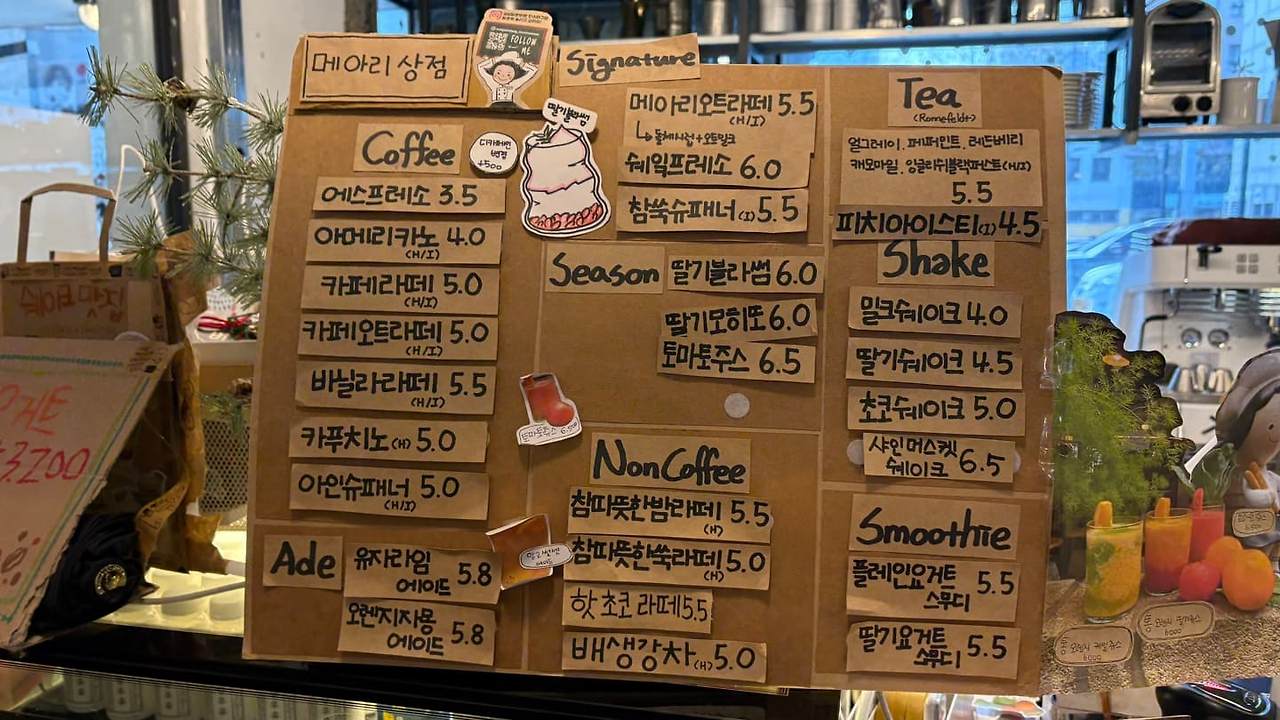 메아리 상점
FOLLOW
ME
Signature
메아리오트라떼 5.5
(H/I)
시그니처 Coffee
디카페인
변경
+500
에스프레소 3.5
아메리카노 4.0
(H/I)
카페라떼 5.0
(H/I)
카페오트라떼 5.0
(H/I)
바닐라라떼 5.5
(H/I)
카푸치노 (H) 5.0
아인슈패너 5.0
(H/I)
Ade
유자라임
에이드 5.8
오렌지자몽
에이드 5.8
딸기블라썸
쉐일프레소 6.0
참쑥슈패너 (I) 5.5
Season
딸기블라썸 6.0
딸기모히또 6.0
토마토주스 6.5
토마토주스
Non Coffee
참따뜻한밤라떼 5.5
(H)
참따뜻한쑥라떼 5.0
(H)
핫초코라떼 5.5
배생강차 (H) 5.0
Tea
(Ronnefeldt)
얼그레이, 페퍼민트, 레드베리
캐모마일, 잉글리쉬블랙퍼스트 (H/I)
5.5
피치아이스티 (I) 4.5
Shake
밀크쉐이크 4.0
딸기쉐이크 4.5
초코쉐이크 5.0
샤인머스켓
쉐이크 6.5
Smoothie
플레인요거트
스무디 5.5
딸기요거트
스무디 5.5
3200